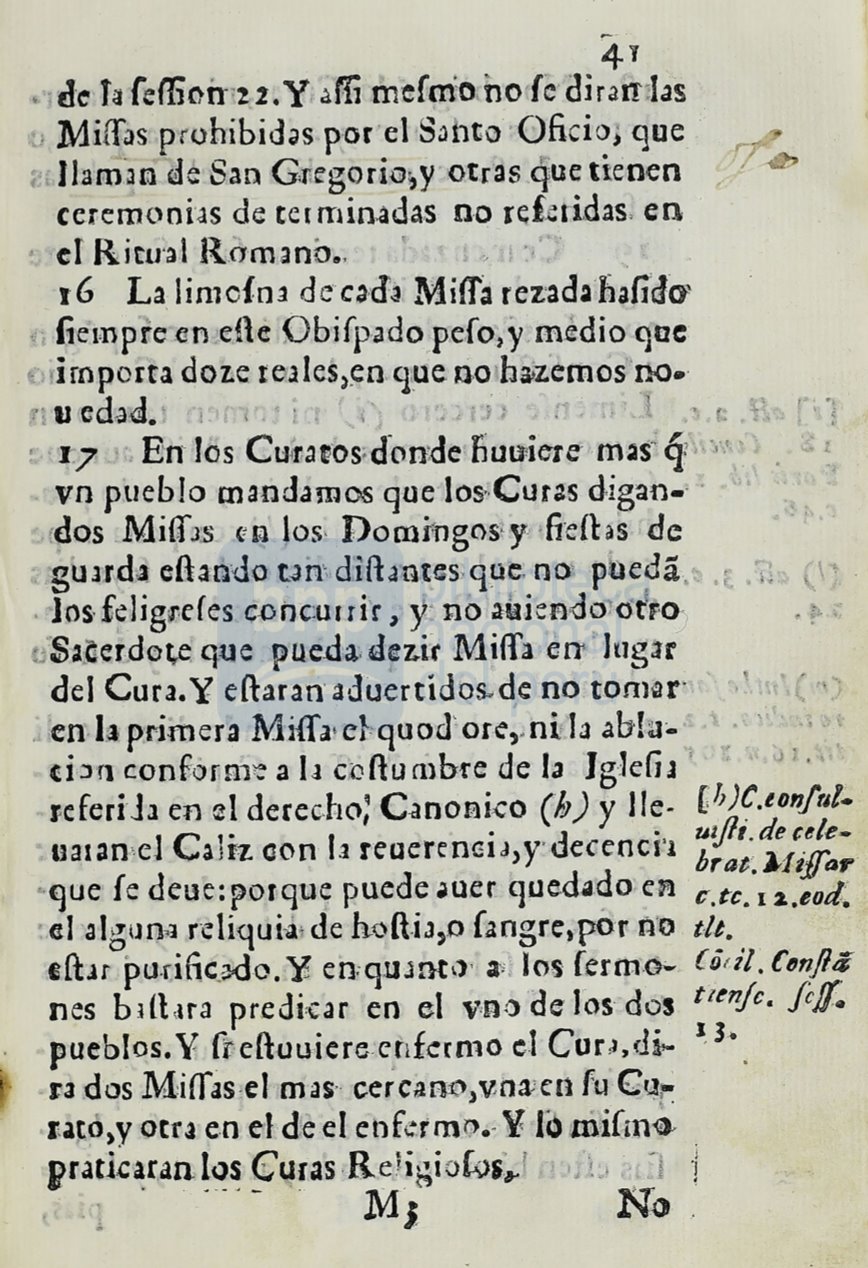 41
de la ſeſſion 22. Y aſſi meſmo no ſe diran las
Miſſas prohibidas por el Santo Oficio, que
llaman de San Gregorio, y otras que tienen
ceremonias de terminadas no referidas en
el Ritual Romano.
16 La limoſna de cada Miſſa rezada ha ſido
ſiempre en eſte Obiſpado peſo, y medio que
importa doze reales, en que no hazemos no-
uedad.
17 En los Curatos donde huuiere mas q̃
vn pueblo mandamos que los Curas digan-
dos Miſſas en los Domingos y fieſtas de
guarda eſtando tan diſtantes que no puedã
los feligreſes concurrir, y no auiendo otro
Sacerdote que pueda dezir Miſſa en lugar
del Cura. Y eſtaran aduertidos de no tomar
en la primera Miſſa el quod ore, ni la ablu-
cion conforme a la coſtumbre de la Igleſia
referida en el derecho, Canonico (h) y lle-
uaran el Caliz con la reuerencia, y decencia
que ſe deue: porque puede auer quedado en
el alguna reliquia de hoſtia, o ſangre, por no
eſtar purificado. Y en quanto a los ſermo-
nes baſtara predicar en el vno de los dos
pueblos. Y ſi eſtuuiere enfermo el Cura, di-
ra dos Miſſas el mas cercano, vna en ſu Cu-
rato, y otra en el de el enfermo. Y lo miſmo
praticaran los Curas Religioſos,
M3 No
(h) C. conſul-
uiſti. de cele-
brat. Miſſar
c. te. 12. eod.
tlt.
Cõcil. Conſtã
tienſe. ſeſſ.
13.